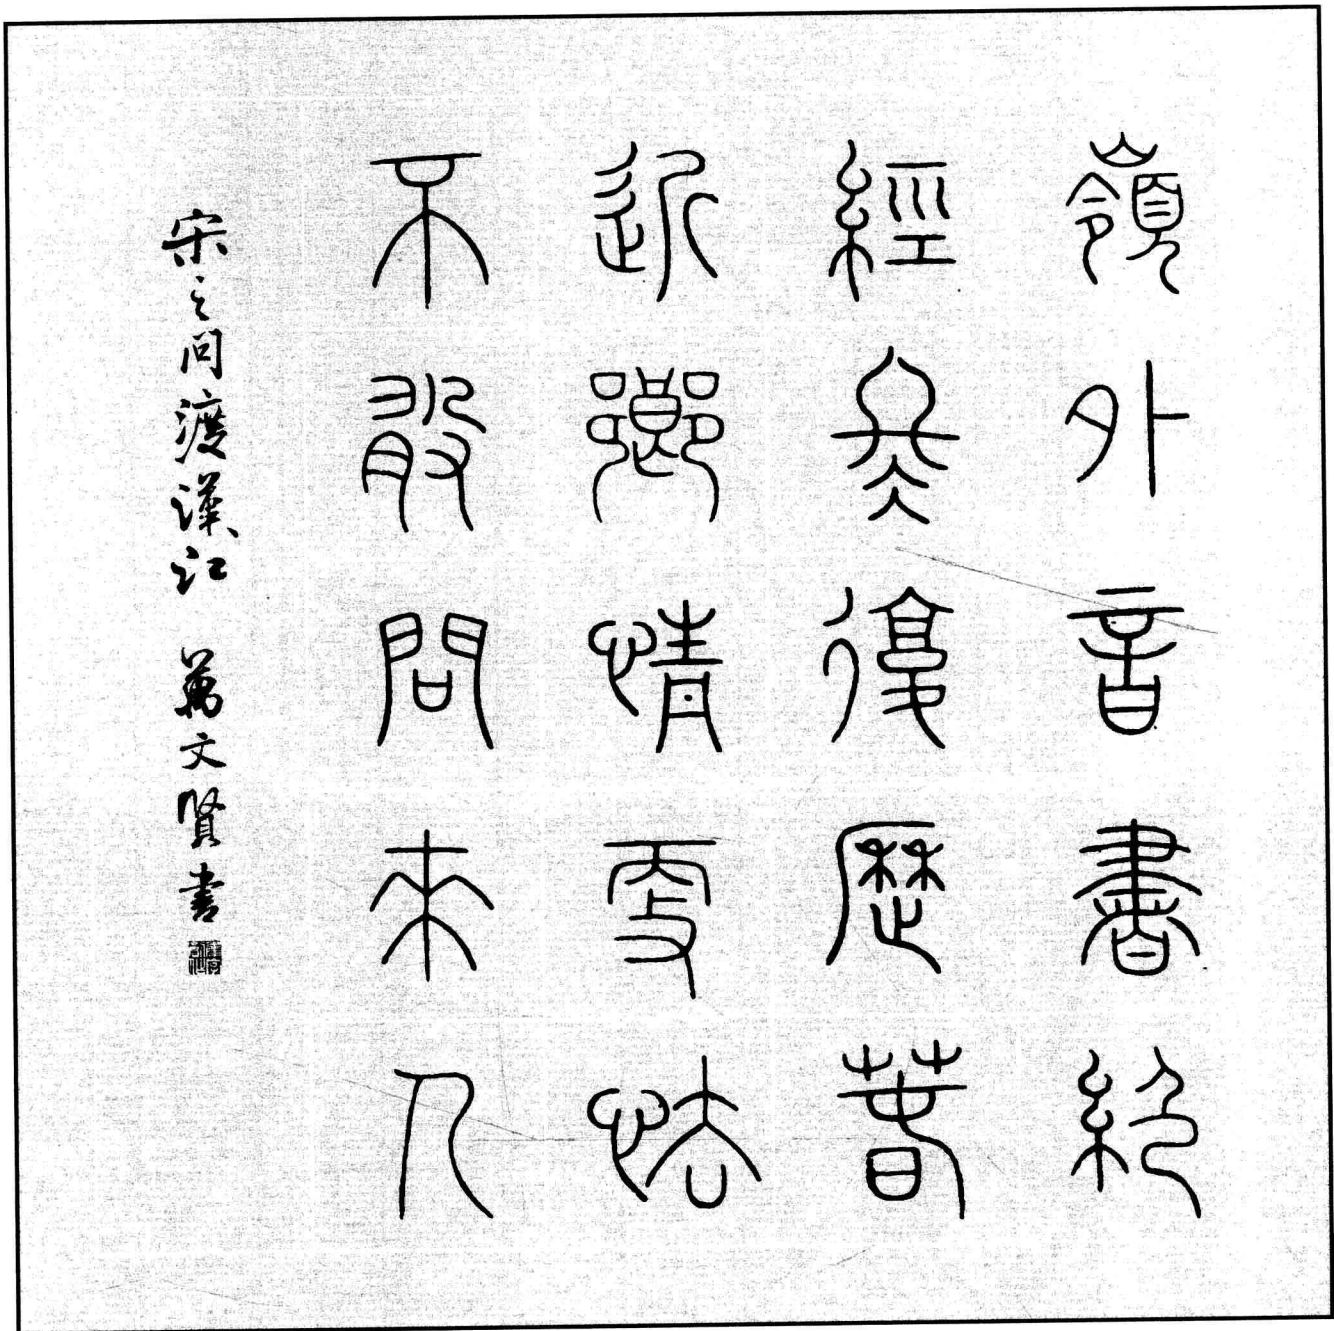 嶺外音書絕
經冬復歷春
近鄉情更怯
不敢問來人
宋之問渡漢江 萬文賢書